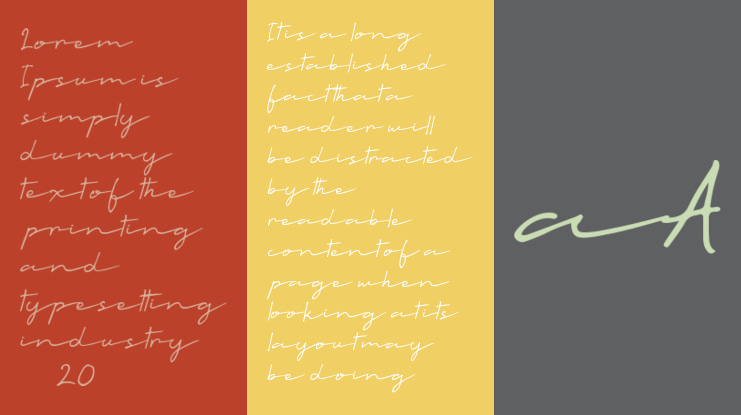 Lorem
Ipsum is
simply
dummy
text of the
printing
and
typesetting
industry
20
It is a long
established
fact that a
reader will
be distracted
by the
readable
content of a
page when
looking at its
layout may
be doing
aA